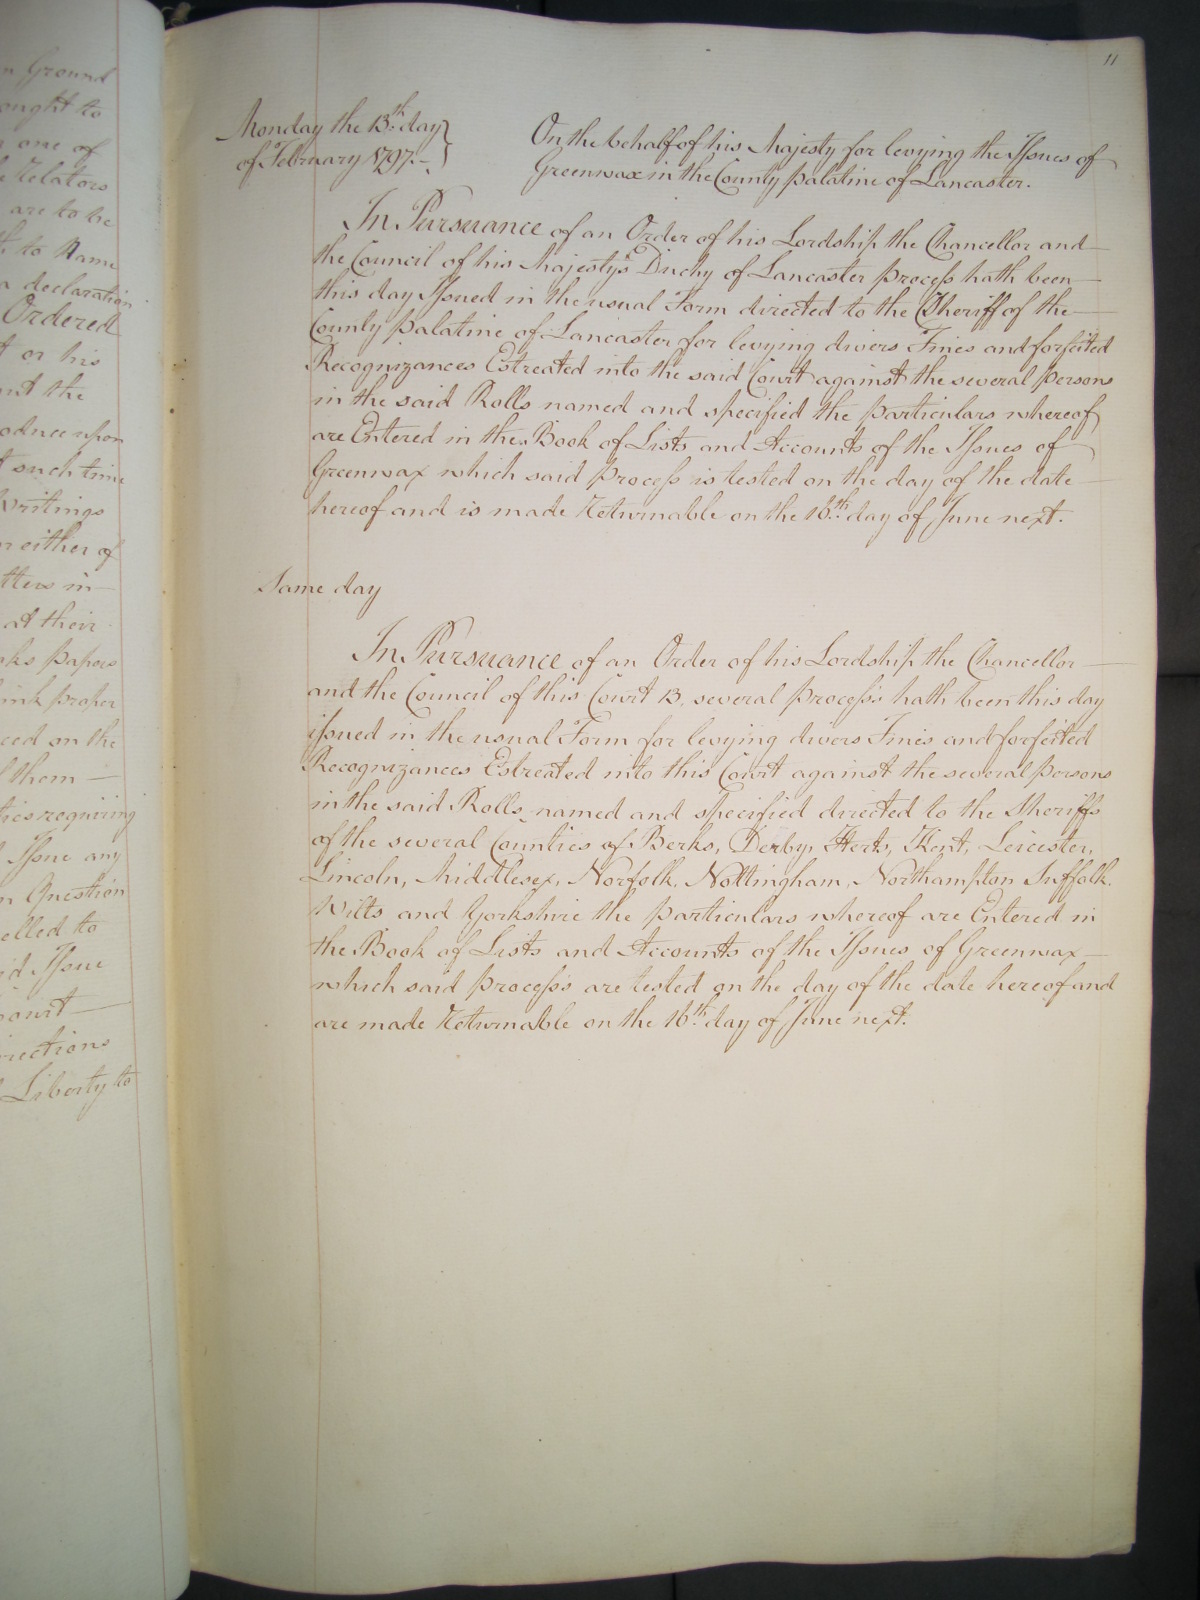 n Ground
ought to
one of
Relators
are to be
to Name
a declaration
Ordered
t or his
nt the
oduce upon
t such time
Writings
or either of
tters in
at their
oks papers
ink proper
ced on the
them
ties requiring
Issue any
n Question
elled to
id Issue
Court
rections
Liberty to
11
Monday the 13th day
of February 1797.
On the behalf of his Majesty for levying the Issues of
Greenwax in the County palatine of Lancaster.
In Pursuance of an Order of his Lordship the Chancellor and
the Council of his Majesty's Duchy of Lancaster process hath been
this day Issued in the usual Form directed to the Sheriff of the
County palatine of Lancaster for levying divers Fines and forfeited
Recognizances Estreated into the said Court against the several persons
in the said Rolls named and specified the particulars whereof
are Entered in the Book of Lists and Accounts of the Issues of
Greenwax which said process is tested on the day of the date
hereof and is made Returnable on the 16th day of June next.
Same day
In Pursuance of an Order of his Lordship the Chancellor
and the Council of this Court 13. several process's hath been this day
issued in the usual Form for levying divers Fines and forfeited
Recognizances Estreated into this Court against the several persons
in the said Rolls named and specified directed to the Sheriffs
of the several Counties of Berks, Derby, Herts, Kent, Leicester,
Lincoln, Middlesex, Norfolk, Nottingham, Northampton Suffolk.
Wilts and Yorkshire the particulars whereof are Entered in
the Book of Lists and Accounts of the Issues of Greenwax
which said process's are tested on the day of the date hereof and
are made Returnable on the 16th day of June next.